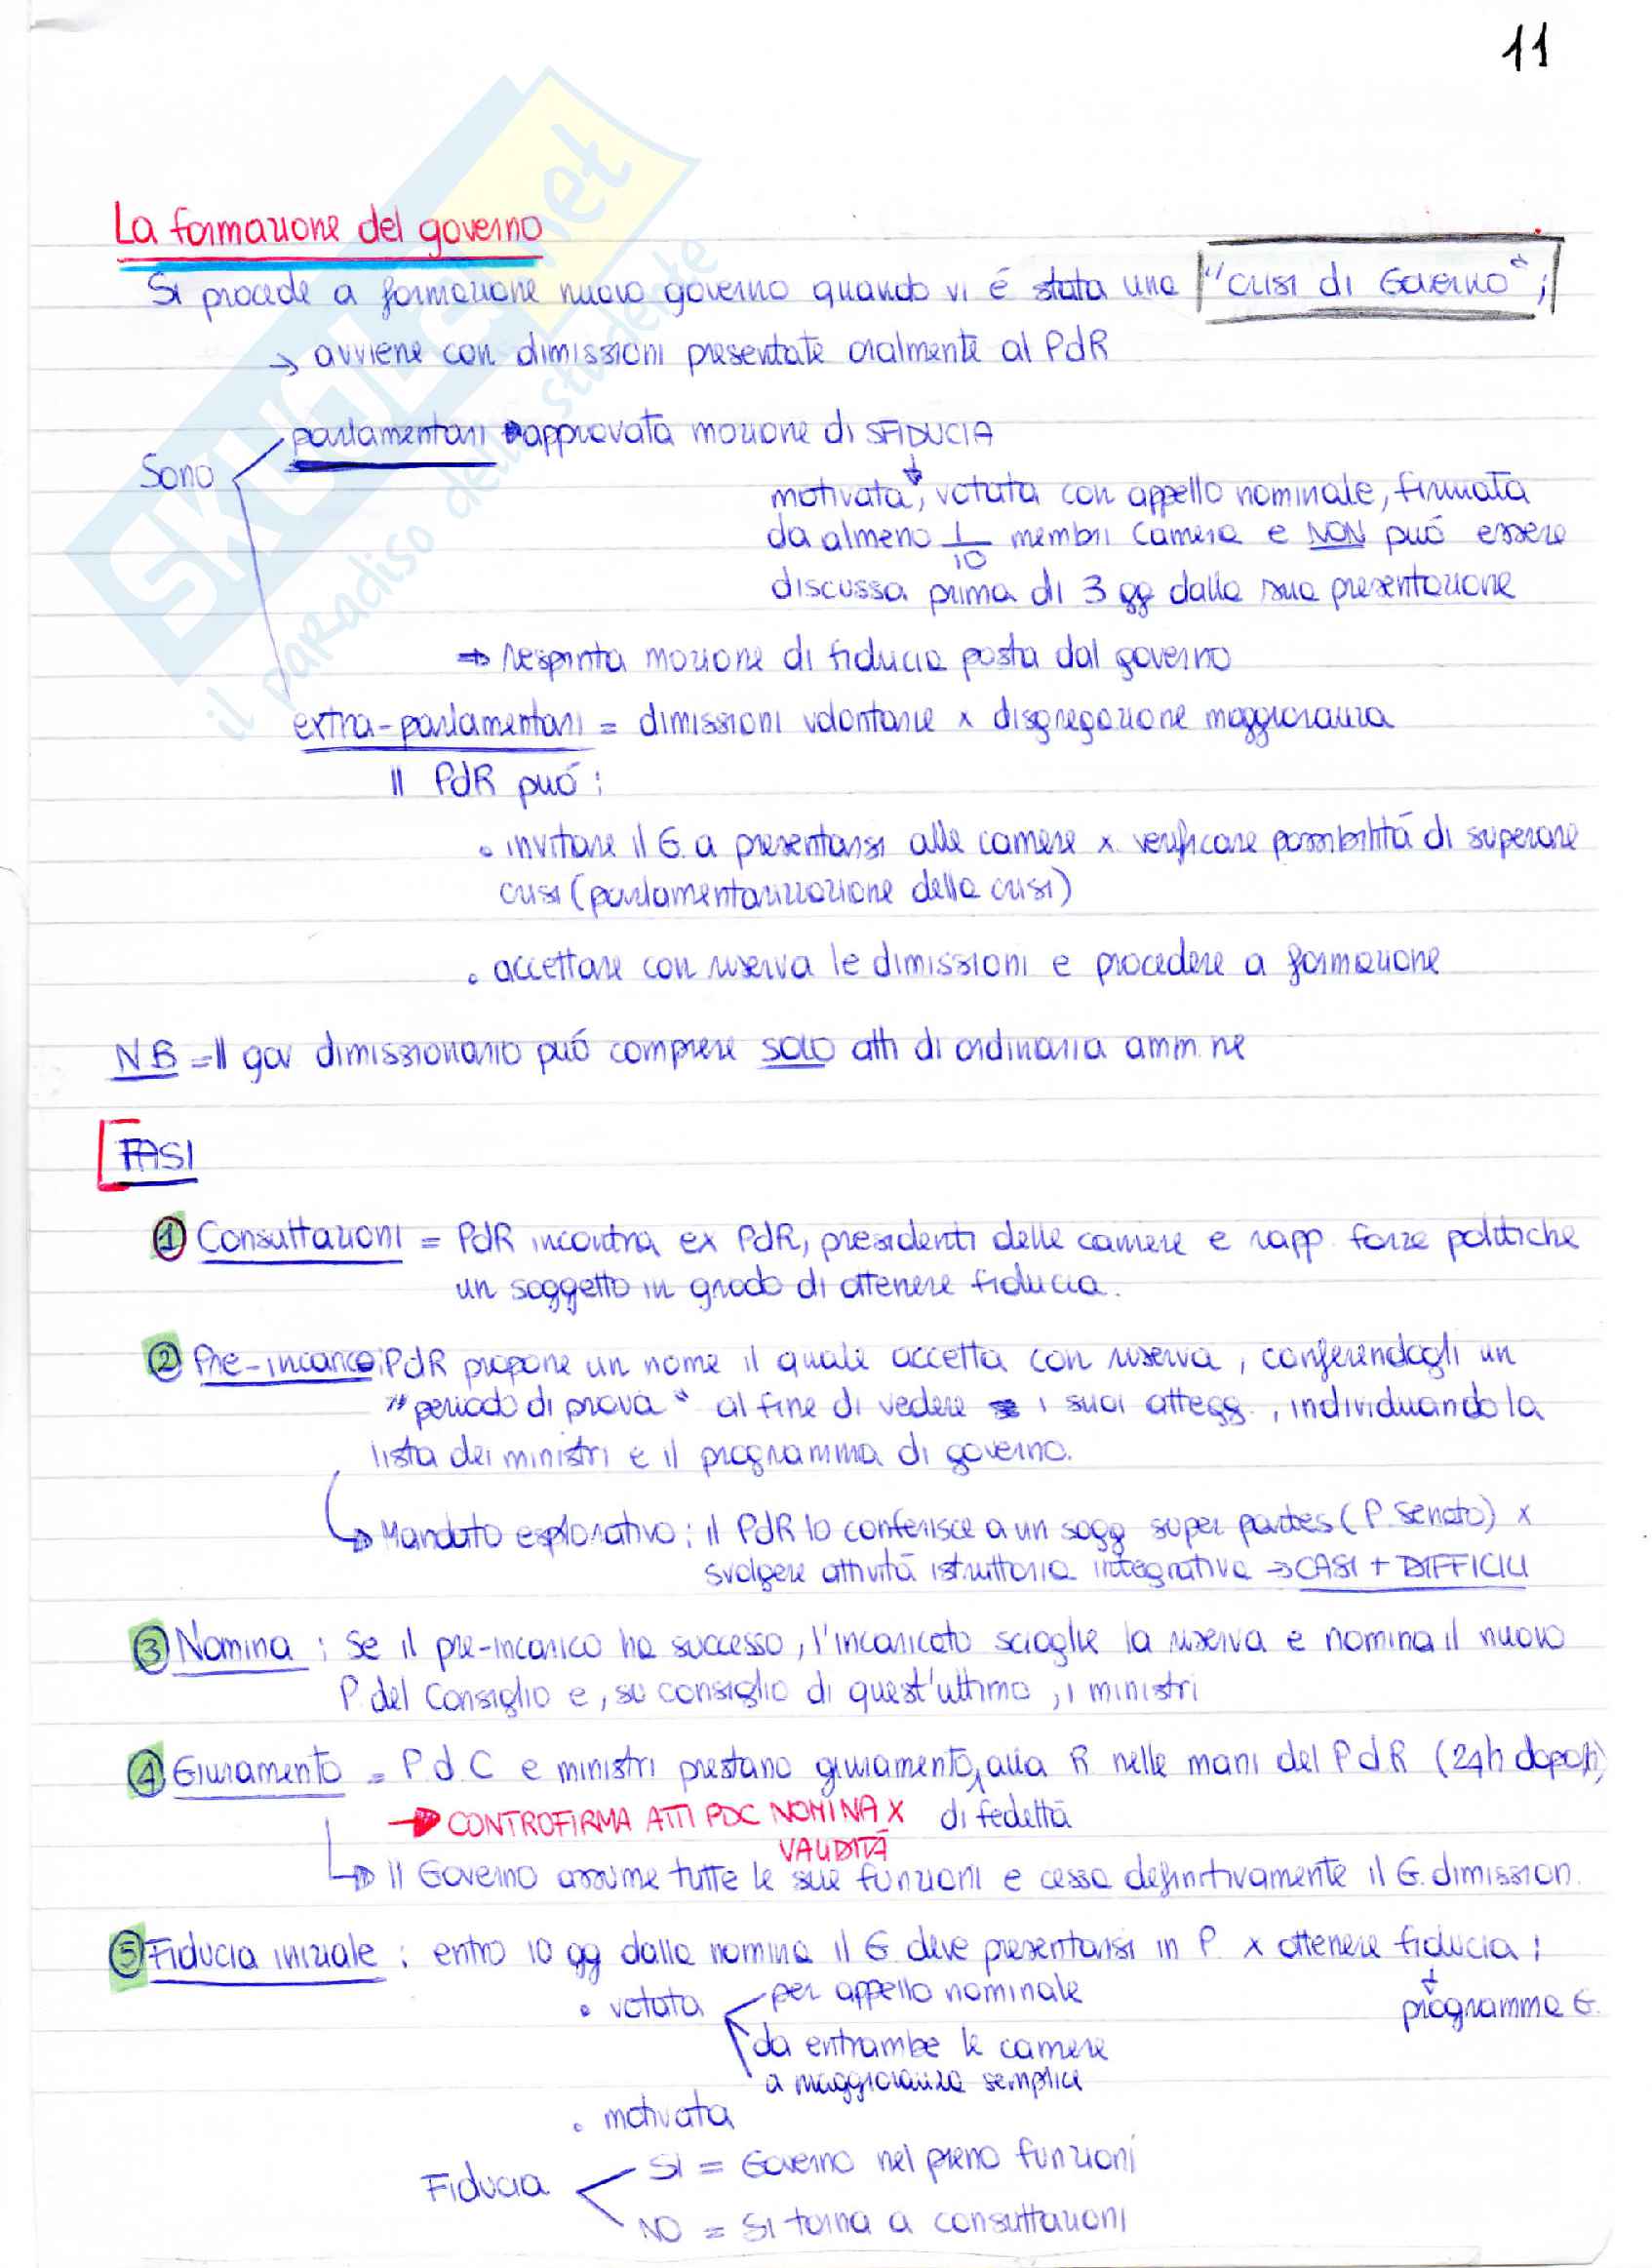 11
SKUOLA.net
il paradiso dello studente
La formazione del governo
Si procede a formazione nuovo governo quando vi é stata una "crisi di Governo";
→ avviene con dimissioni presentate oralmente al PdR
Sono
parlamentari → approvata mozione di SFIDUCIA
motivata, votata con appello nominale, firmata
da almeno 1/10 membri Camera e NON puó essere
discussa prima di 3 gg dalla sua presentazione
→ respinta mozione di fiducia posta dal governo
extra-parlamentari = dimissioni volontarie x disgregazione maggioranza
Il PdR puó:
• invitare il G. a presentarsi alle camere x verificare possibilitá di superare
crisi (parlamentarizzazione della crisi)
• accettare con riserva le dimissioni e procedere a formazione
NB = Il gov dimissionario puó compiere SOLO atti di ordinaria amm.ne
FASI
① Consultazioni = PdR incontra ex PdR, presidenti delle camere e rapp. forze politiche
un soggetto in grado di ottenere fiducia.
② Pre-incarico: PdR propone un nome il quale accetta con riserva, conferendogli un
"periodo di prova" al fine di vedere i suoi attegg., individuando la
lista dei ministri e il programma di governo.
→ Mandato esplorativo: il PdR lo conferisce a un sogg super partes (P. Senato) x
svolgere attivitá istruttoria integrativa → CASI + DIFFICILI
③ Nomina: Se il pre-incarico ha successo, l'incaricato scioglie la riserva e nomina il nuovo
P. del Consiglio e, su consiglio di quest'ultimo, i ministri
④ Giuramento = P.d.C e ministri prestano giuramento alla R nelle mani del PdR (24h dopo)
→ CONTROFIRMA ATTI PDC NOMINA X di fedeltá
VALIDITÁ
→ Il Governo assume tutte le sue funzioni e cessa definitivamente il G. dimission.
⑤ Fiducia iniziale: entro 10 gg dalla nomina il G. deve presentarsi in P. x ottenere fiducia;
• votata per appello nominale
programma G.
da entrambe le camere
a maggioranza semplice
• motivata
Fiducia
SI = Governo nel pieno funzioni
NO = Si torna a consultazioni